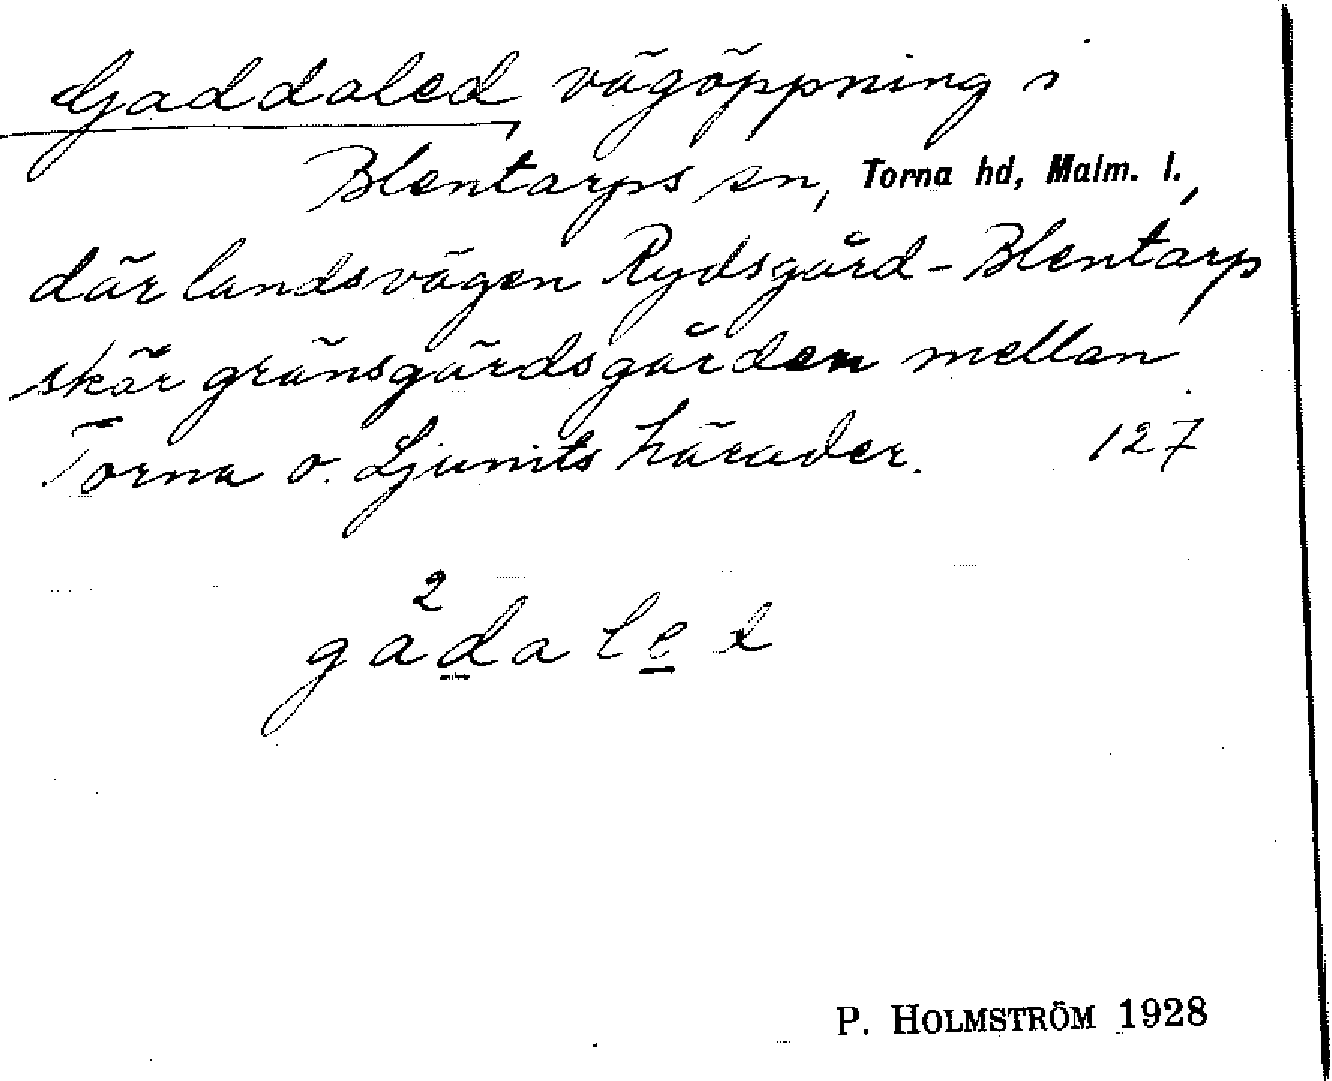 Gaddaled, vägöppning i
Blentarps sn, Torna hd, Malm. l.,
där landsvägen Rydsgård - Blentarp
skär gränsgärdsgården mellan
Torna o. Ljunits härader. 127
2
gadaled
P. HOLMSTRÖM 1928